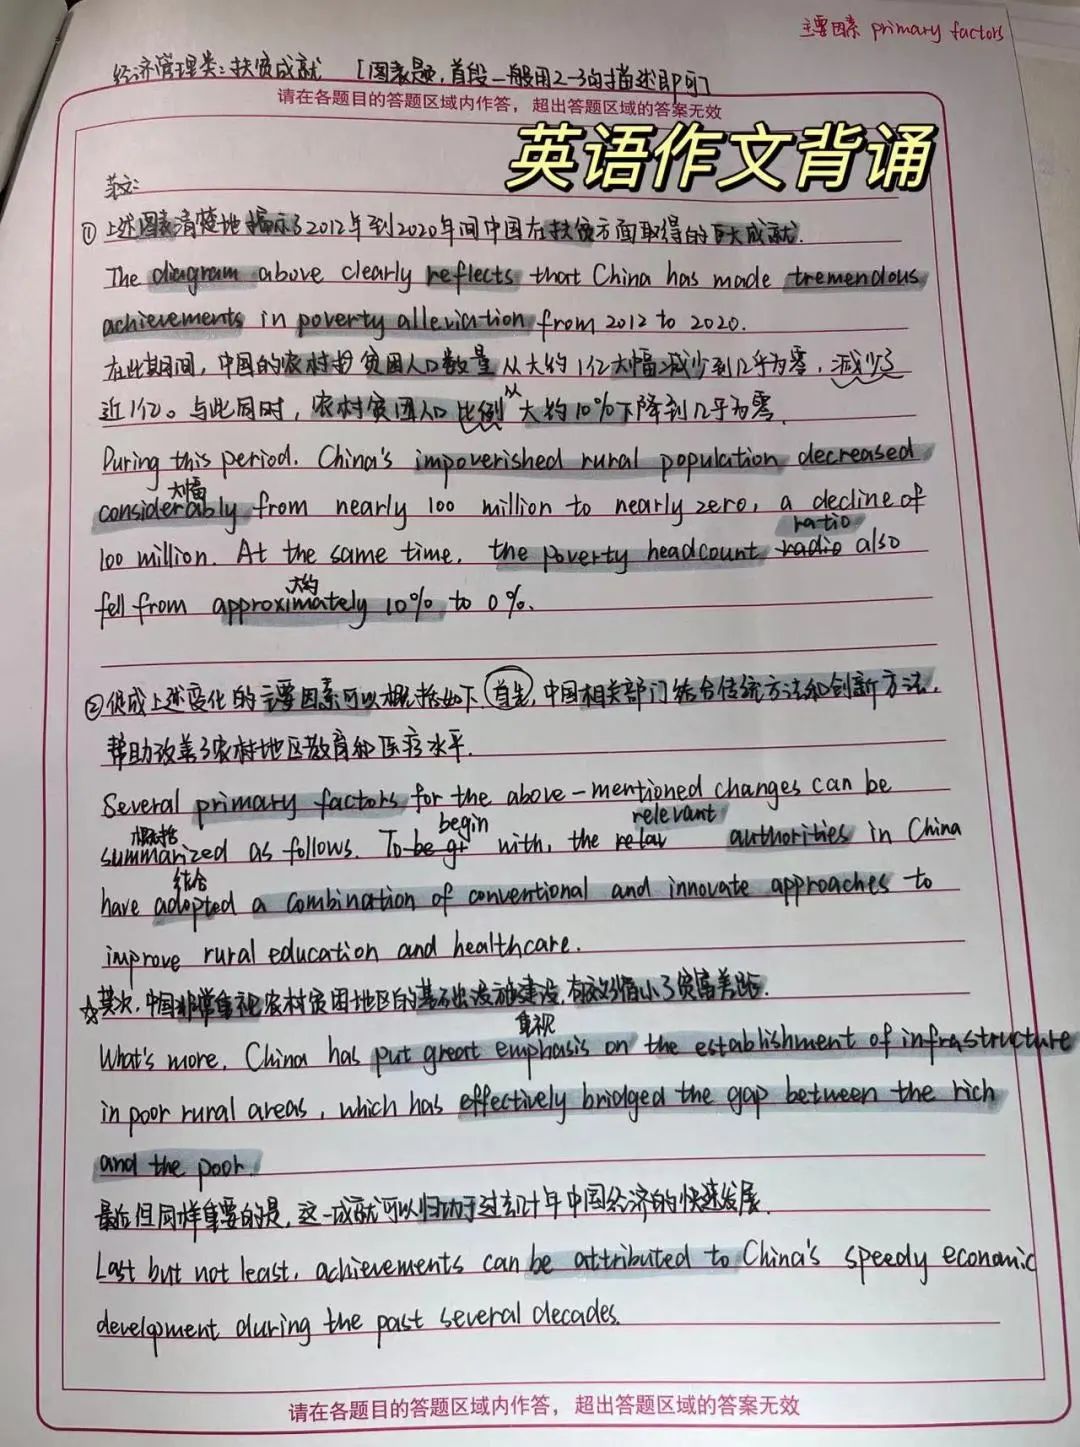 主要因素 primary factors
经济管理类:扶贫成就 [图表题,首段一般用2-3句描述即可]
请在各题目的答题区域内作答,超出答题区域的答案无效
英语作文背诵
范文:
① 上述图表清楚地揭示了2012年到2020年间中国在扶贫方面取得的巨大成就.
The diagram above clearly reflects that China has made tremendous
achievements in poverty alleviation from 2012 to 2020.
在此期间,中国的农村贫困人口数量从大约1亿大幅减少到几乎为零,减少了
近1亿。与此同时,农村贫困人口比例从大约10%下降到几乎为零.
During this period. China's impoverished rural population decreased
大幅
considerably from nearly 100 million to nearly zero, a decline of
ratio
100 million. At the same time, the poverty headcount radio also
大约
fell from approximately 10% to 0%.
② 促成上述变化的主要因素可以概括如下.首先,中国相关部门结合传统方法和创新方法,
帮助改善了农村地区教育和医疗水平.
Several primary factors for the above-mentioned changes can be
概括 begin relevant
summarized as follows. To be gi with, the relav authorities in China
结合
have adopted a combination of conventional and innovate approaches to
improve rural education and healthcare.
☆其次,中国非常重视农村贫困地区的基础设施建设,有效缩小了贫富差距.
重视
What's more, China has put great emphasis on the establishment of infrastructure
in poor rural areas, which has effectively bridged the gap between the rich
and the poor.
最后但同样重要的是,这一成就可以归功于过去几十年中国经济的快速发展.
Last but not least, achievements can be attributed to China's speedy economic
development during the past several decades.
请在各题目的答题区域内作答,超出答题区域的答案无效